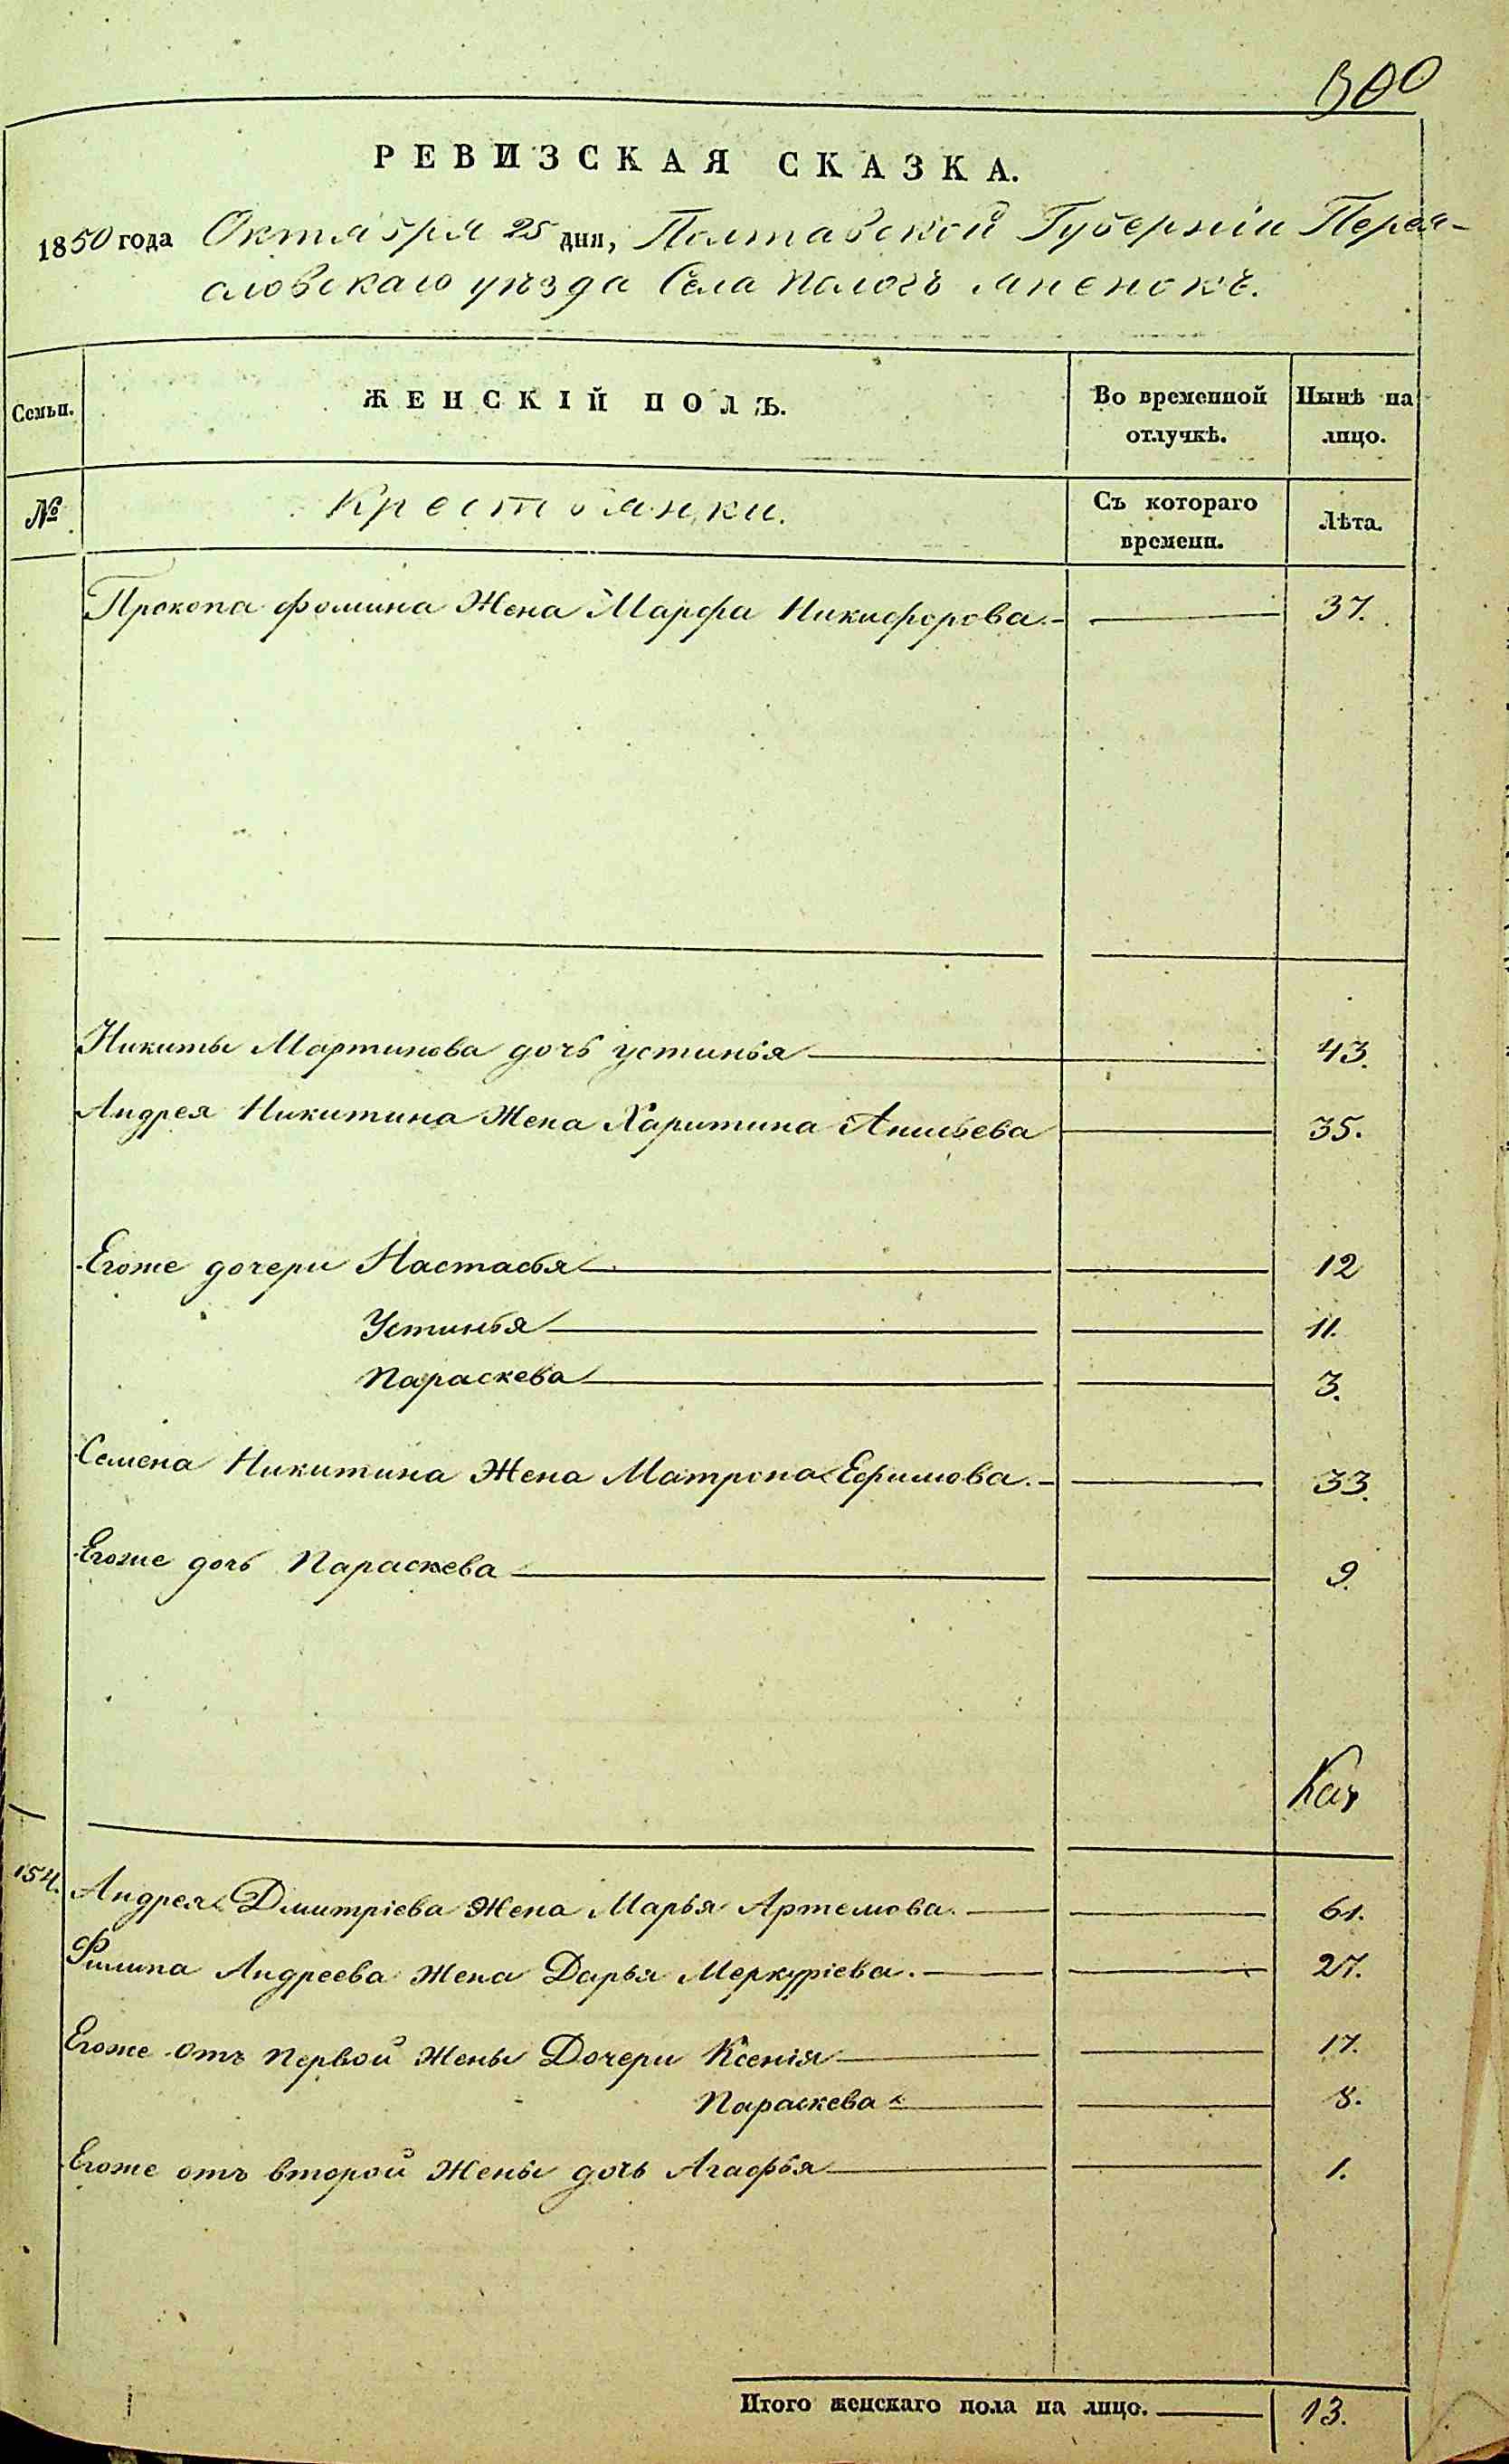 300
РЕВИЗСКАЯ СКАЗКА.
1850 года Октября 25 дня, Полтавской Губерніи Перея-
словскаго уѣзда Села Пологъ
Семьи. ЖЕНСКІЙ ПОЛЪ. Во временной отлучкѣ. Нынѣ на лицо.
№ Крестьянки. Съ котораго времени. Лѣта.
Прокопа Фомина Жена Марфа Никифорова. 37.
Никиты Мартинова дочь устинья 43.
Андрея Никитина Жена Харитина 35.
Егоже дочери Настасья 12
Устинья 11.
Параскева 3.
Семена Никитина Жена Матрона Ефимова. 33.
Егоже дочь Параскева 9.
154. Андрея Дмитріева Жена Марья Артемова. 61.
Филипа Андреева Жена Дарья Меркуріева. 27.
Егоже отъ первой Жены Дочери Ксенія 17.
Параскева 8.
Егоже отъ второй Жены дочь Агафья 1.
Итого женскаго пола на лицо. 13.